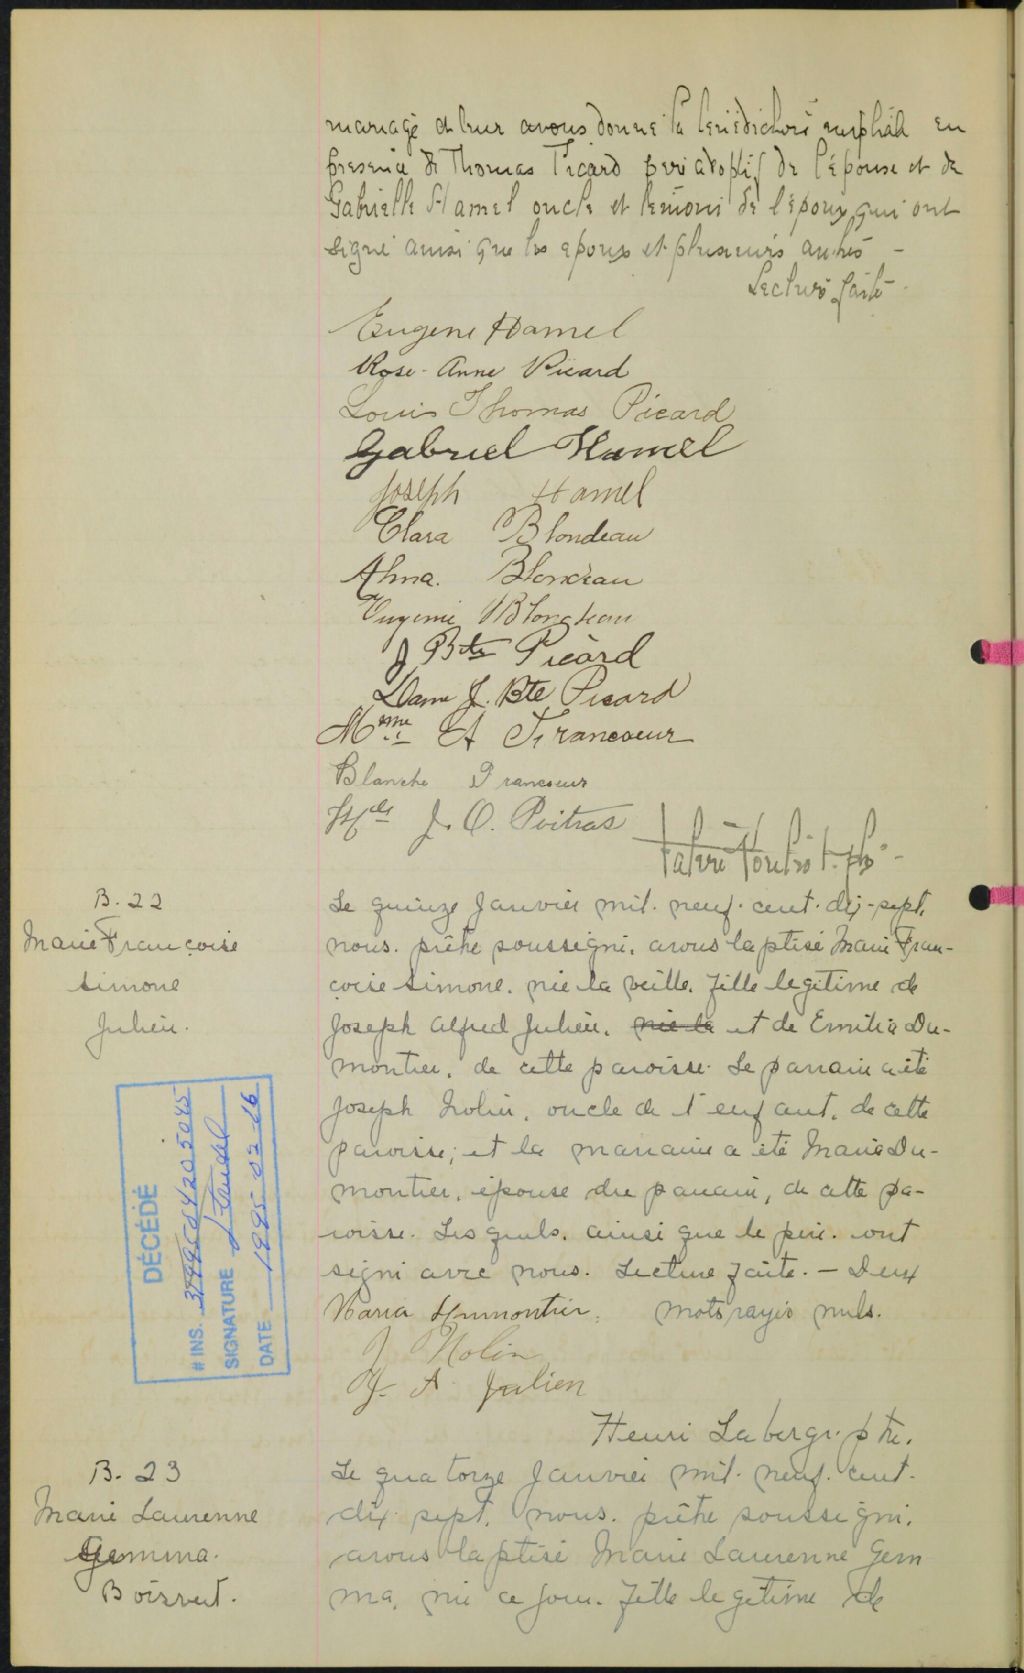 mariage et leur avons donné la bénédiction nuptiale en
présence de Thomas Picard père adoptif de l'épouse et de
Gabrielle Hamel oncle et témoin de l'époux qui ont
signé ainsi que les époux et plusieurs autres -
Lecture faite.
Eugene Hamel
Rose-Anne Picard
Louis Thomas Picard
Gabriel Hamel
Joseph Hamel
Clara Blondeau
Alma. Blondeau
Eugenie Blondeau
J Bte Picard
Dame J. Bte Picard
Mme A Francoeur
Blanche Francoeur
J. O. Poitras
B. 22
Marie Françoise
Simone
Julien.
Le quinze Janvier mil. neuf. cent. dix-sept,
nous. prêtre soussigné, avons baptisé Marie Fran-
çoise Simone. née la veille. fille legitime de
Joseph Alfred Julien. née la et de Emilia Du-
montier, de cette paroisse. Le parrain a été
Joseph Nolin, oncle de l'enfant, de cette
paroisse; et la marraine a été Maria Du-
montier, épouse du parrain, de cette pa-
roisse. Lesquels, ainsi que le père. ont
signé avec nous. Lecture faite. - Deux
Maria Dumontier. mots rayés nuls.
J Nolin
J. A. Julien
Henri Laberge. ptre.
DÉCÉDÉ
# INS.
SIGNATURE
DATE 1995-02-16
B. 23
Marie Laurenne
Gemma.
Boisvert.
Le quatorze Janvier mil. neuf. cent.
dix. sept, nous. prêtre soussigné.
avons baptisé Marie Laurenne Gem
ma, née ce jour. fille legitime de